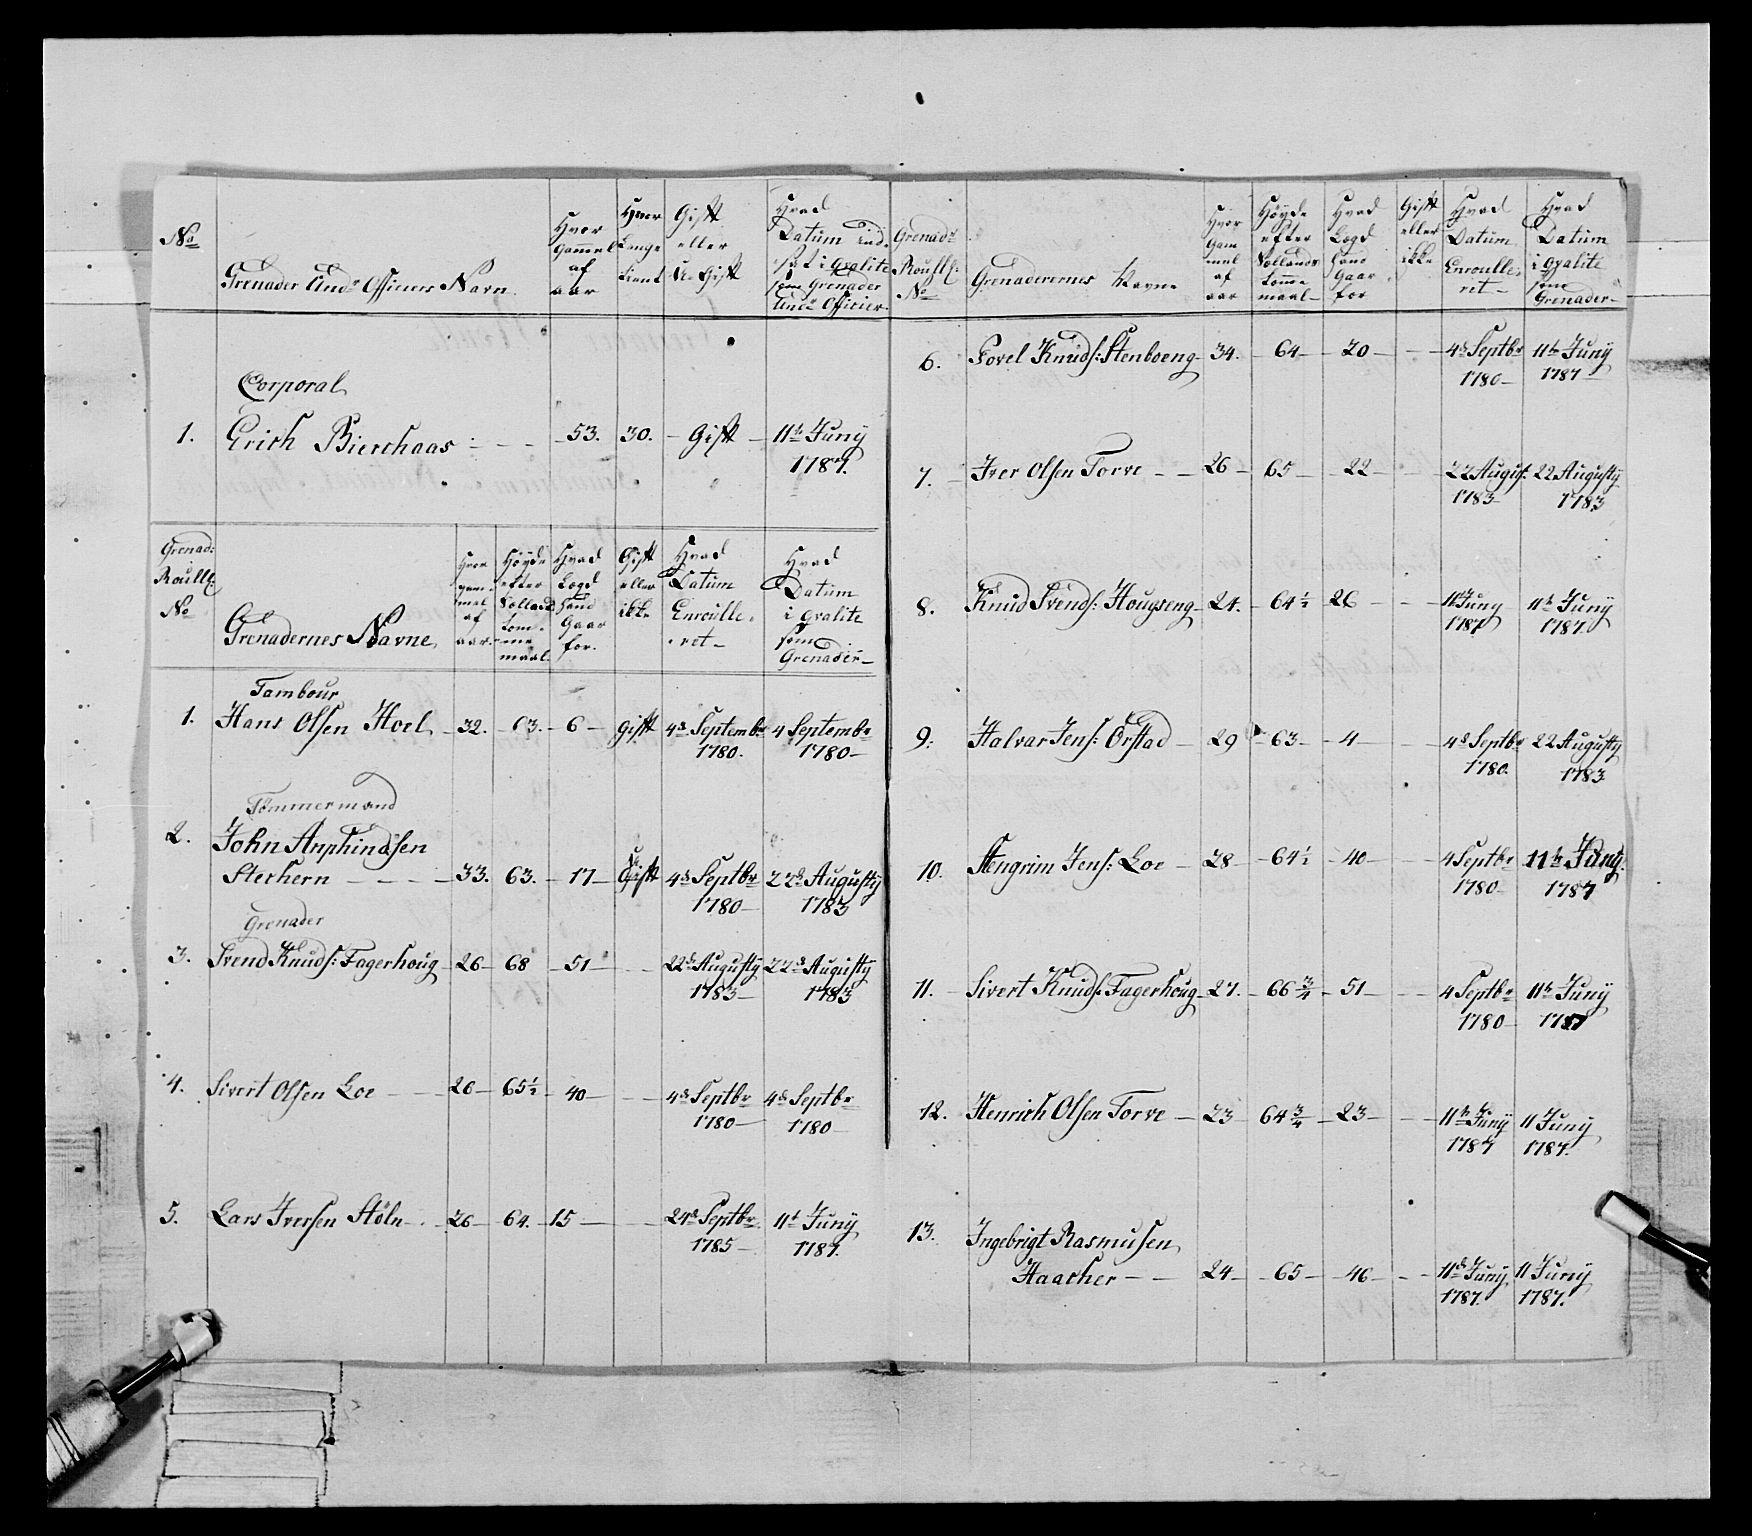 No
Grenader Und: Officiers Navn
Hvor
Gammel
af
aar
Hvor
Længe
tient
Gift
eller
U Gift
Hvad
Datum ind
sat i qvalite
som Grenader
Und: Officier
Corporal
1. Erich Bierchaas - - - 53. 30. - Gift - 11te Juny
1787.
Grenad:
Roulle:
No
Grenadernes Navne
Hvor
gam-
mel
af
aar
Høyde
efter
Solland
tom-
me
maal
Hvad
Logd
hand
Gaar
for
Gift
eller
ikke
Hvad
Datum
Enroulle-
ret
Hvad
Datum
i qvalite
som
Grenader
Tambour
1. Hans Olsen Hoel - 32. - 63. - 6 - gift 4de Septembr 4 Septembr
1780. 1780
Tømmermand
2. John Arnphindsen
Sterhern - - - - 33. 63. - 17 - U Gift 4de Septbr 22de Augusty
1780 1783
Grenader
3. Svend Knuds: Fagerhoug 26 - 68 - 51 - - 22de Augusty 22de Augusty
1783 1783
4. Sivert Olsen Loe - - 26 - 65½ - 40 - - 4de Septbr 4de Septbr
1780 1780
5. Lars Iversen Støln - 26 - 64. 15 - - 24de Septbr 11te Juny
1785 1787.
Grenadr
Roulle:
No
Grenaderernes Navne
Hvor
Gam
mel
af
aar
Høyde
efter
Sollands
tomme
maal
Hvad
Logd
hand
Gaar
for
Gift
eller
ikke
Hvad
Datum
Enroulle-
ret
Hvad
Datum
i qvalite
som
Grenader
6. Povel Knuds: Stenboeng - 34. - 64 - 20 - - 4de Septbr 11te Juny
1780 1787
7. Iver Olsen Torve - - 26 - 65 - 22 - - 22 August 22 Augusty
1783 1783
8. Knud Svends: Hougseng - 24. - 64½ 26 - - 11te Juny 11te Juny
1787 1787.
9. Halvar Jens: Ørstad - 29 - 63 - 4 - - 4de Septbr 22 Augusty
1780. 1783
10. Stengrim Jens: Loe - 28 - 64½ - 40 - - 4 Septbr 11te Juny
1780 1787
11. Sivert Knuds: Fagerhoug - 27. - 66¾ - 51 - - 4 Septbr 11te Juny
1780 1787
12. Henrich Olsen Torve - 23 - 64¾ - 23 - - 11te Juny 11 Juny
1787 1787.
13. Ingebrigt Rasmusen
Haacher - - 24 - 65 - 46 - - 11te Juny 11 Juny
1787. 1787.